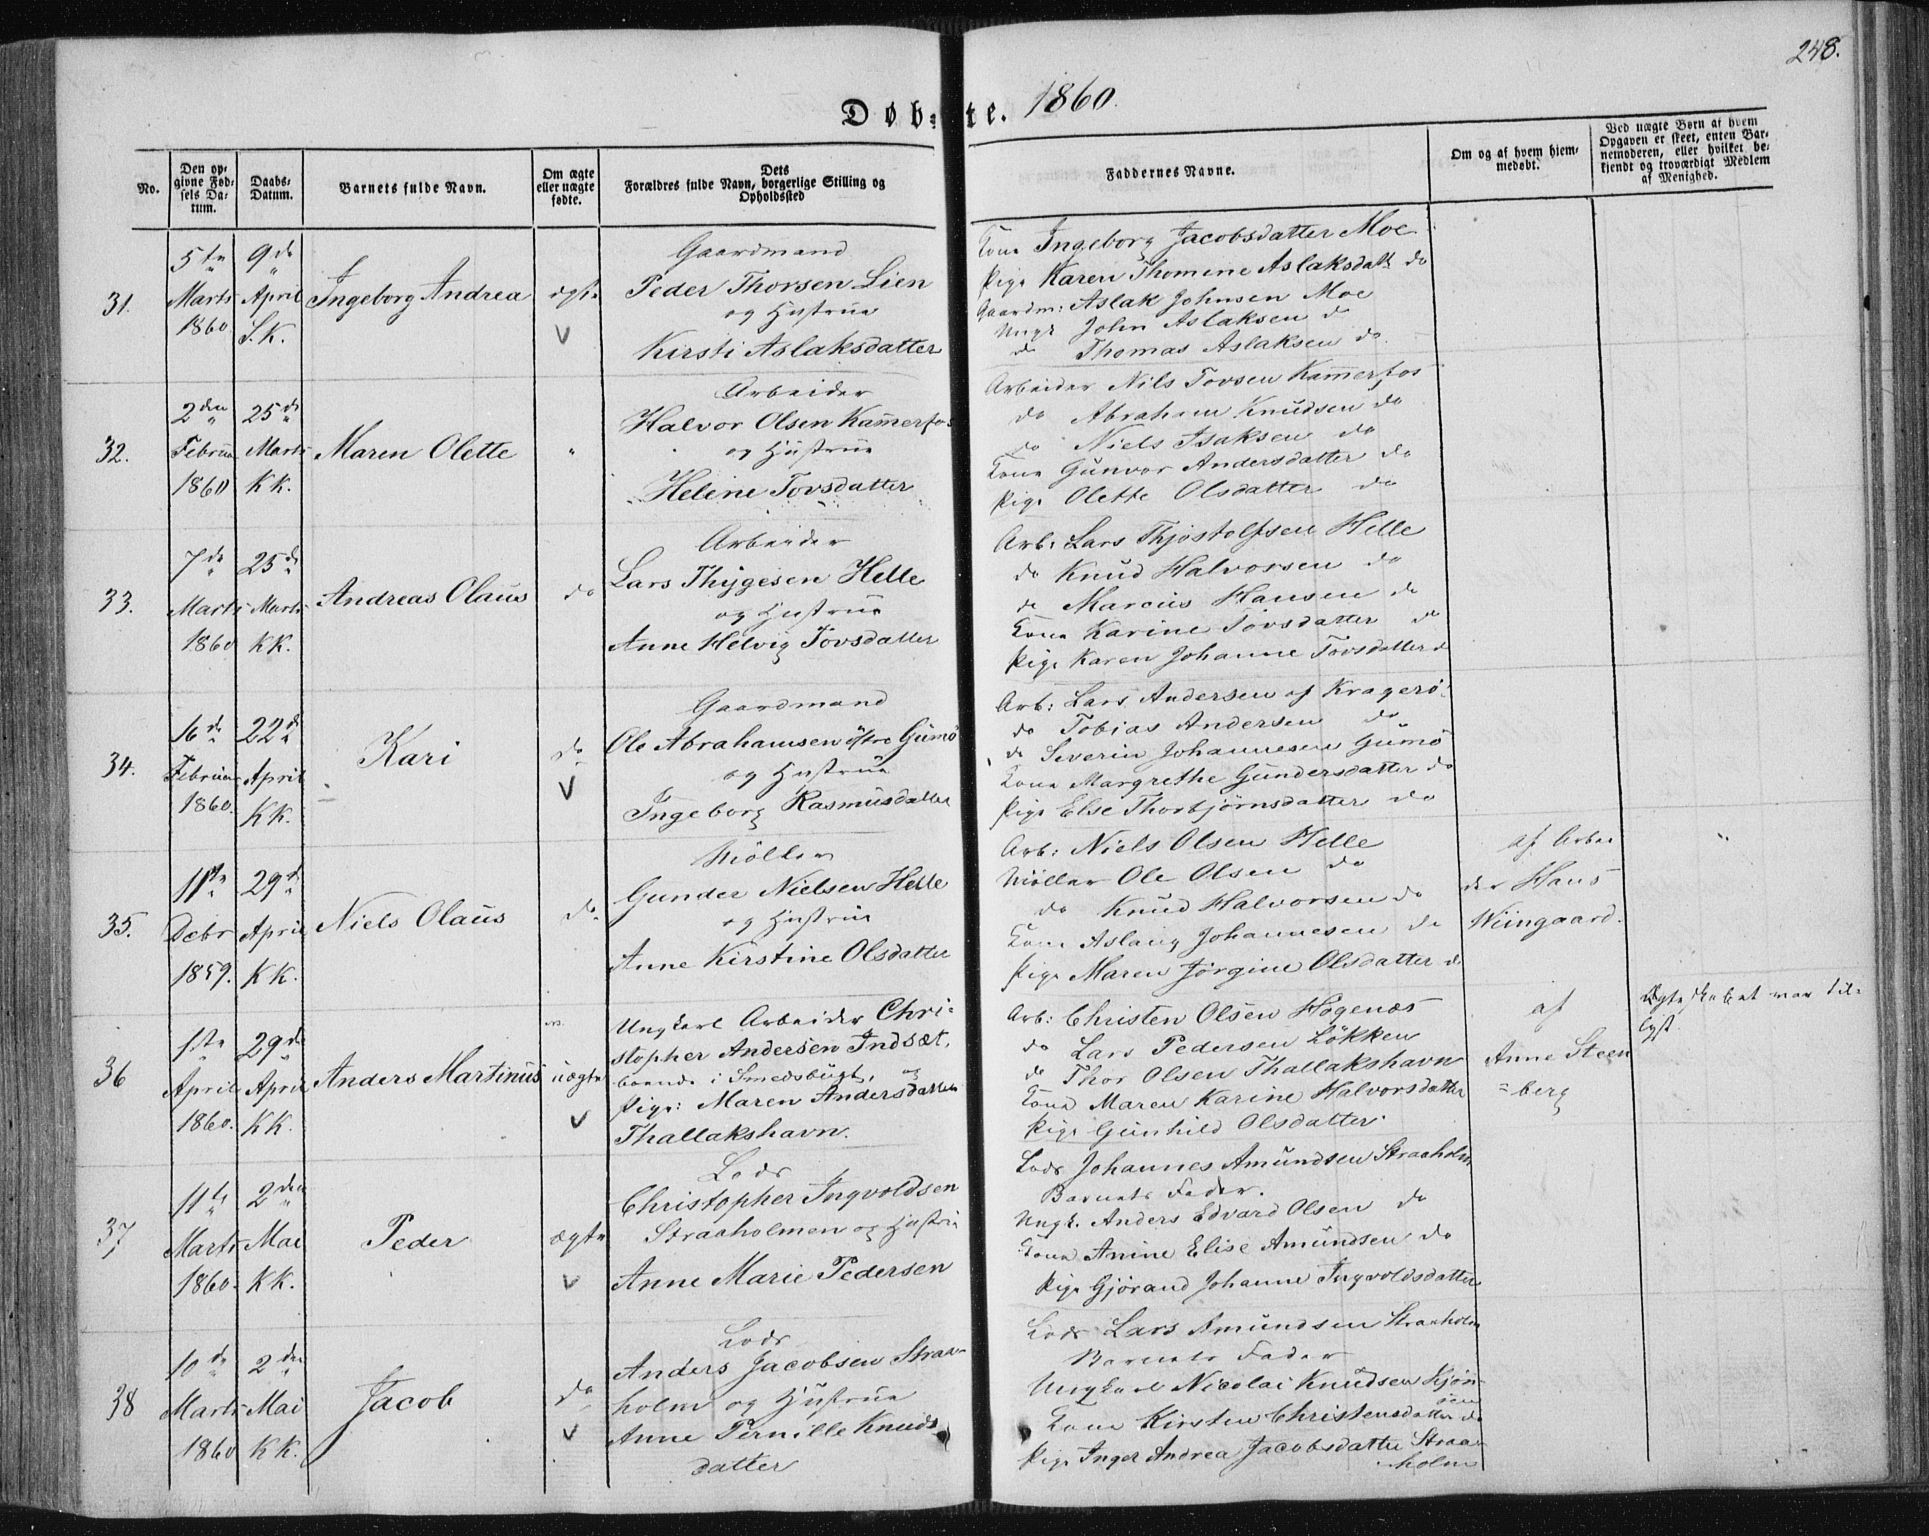 248.
Døb-te. 1860.
No.
Den op-
givne Fød-
sels Da-
tum.
Daabs-
Datum.
Barnets fulde Navn.
Om ægte
eller uægte
fødte.
Dets
Forældres fulde Navn, borgerlige Stilling og
Opholdssted
Faddernes Navne.
Om og af hvem hjem-
medøbt.
Ved uægte Børn af hvem
Opgaven er skeet, enten Bar-
nemoderen, eller hvilket be-
kjendt og troværdigt Medlem
af Menighed.
31.
5te
Marts
1860
9de
April
S.K.
Ingeborg Andrea
ægte
Gaardmand
Peder Thorsen Lien
og Hustrue
Kirsti Aslaksdatter
Kone Ingeborg Jacobsdatter Moe
Pige Karen Thomine Aslaksdatt do
Gaardm: Aslak Johnsen Moe
Ungk John Aslaksen do
do Thomas Aslaksen do.
32.
2den
Februar
1860
25de
Marts
KK.
Maren Olette
"
Arbeider
Halvor Olsen Kammerfos
og Hustrue
Helene Tovsdatter
Arbeider Nils Tovsen Kammerfos
do Abraham Knudsen do
do Niels Isaksen do
Kone Gunvor Andersdatter do
Pige Olette Olsdatter do
33.
7de
Marts
1860
25de
Marts
KK.
Andreas Olaus
do
Arbeider
Lars Thygesen Helle
og Hustrue
Anne Helvig Tovsdatter
Arb: Lars Thjostolfsen Helle
do Knud Halvorsen do
do Marcus Hansen do
Kone Karine Tovsdatter do
Pige Karen Johanne Tovsdatter d
34.
16de
Februar
1860.
22de
April
KK.
Kari
do
Gaardmand
Ole Abrahamsen östre Gumö
og Hustrue
Ingeborg Rasmusdatter
Arb: Lars Andersen af Kragerö
do Tobias Andersen do
do Severin Johannesen Gumö
Kone Margrethe Gundersdatter do
Pige Else Thorbjörnsdatter do
35.
11te
Decbr
1859.
29de
April
KK.
Niels Olaus
do
Möller
Gunder Nielsen Helle
og Hustrue
Anne Kirstine Olsdatter
Arb: Niels Olsen Helle
Möller Ole Olsen do
do Knud Halvorsen do
Kone Aslaug Johannesen do
Pige Maren Jörgine Olsdatter d
af Arbei
der Hans
Wiingaard.
36
1ste
April
1860.
29de
April
KK.
Anders Martinus
uægte
Ungkarl Arbeider Chri-
stopher Andersen Indsæt,
boende i Smedsbugt, og
Pige: Maren Andersdatter
Thallakshavn.
Arb: Christen Olsen Högenæs
do Lars Pedersen Lökken
do Thor Olsen Thallakshavn
Kone Maren Karine Halvorsdatter
Pige Gunhild Olsdatter.
af
Anne Steen
=berg
Ægteskabet var til-
lyst.
37
11te
Marts
1860.
2den
Mai
KK.
Peder
ægte
Lods
Christopher Ingvoldsen
Straaholmen og Hustrue
Anne Marie Pedersen
Lods Johannes Amundsen Straaholm
Barnets Fader.
Ungk. Anders Edvard Olsen do
Kone Anine Elise Amundsen do
Pige Gjörand Johanne Ingvoldsdatter
38
10de
Marts
1860
2den
Mai
KK.
Jacob
do
Lods
Anders Jacobsen Straa-
holm og Hustrue
Anne Pernille Knuds
datter
Lods Lars Amundsen Straaholm
Barnets Fader
Ungkarl Nicolai Knudsen Kjön-
Kone Kirsten Christensdatter do
Pige Inger Andrea Jacobsdatter Straa-
holm